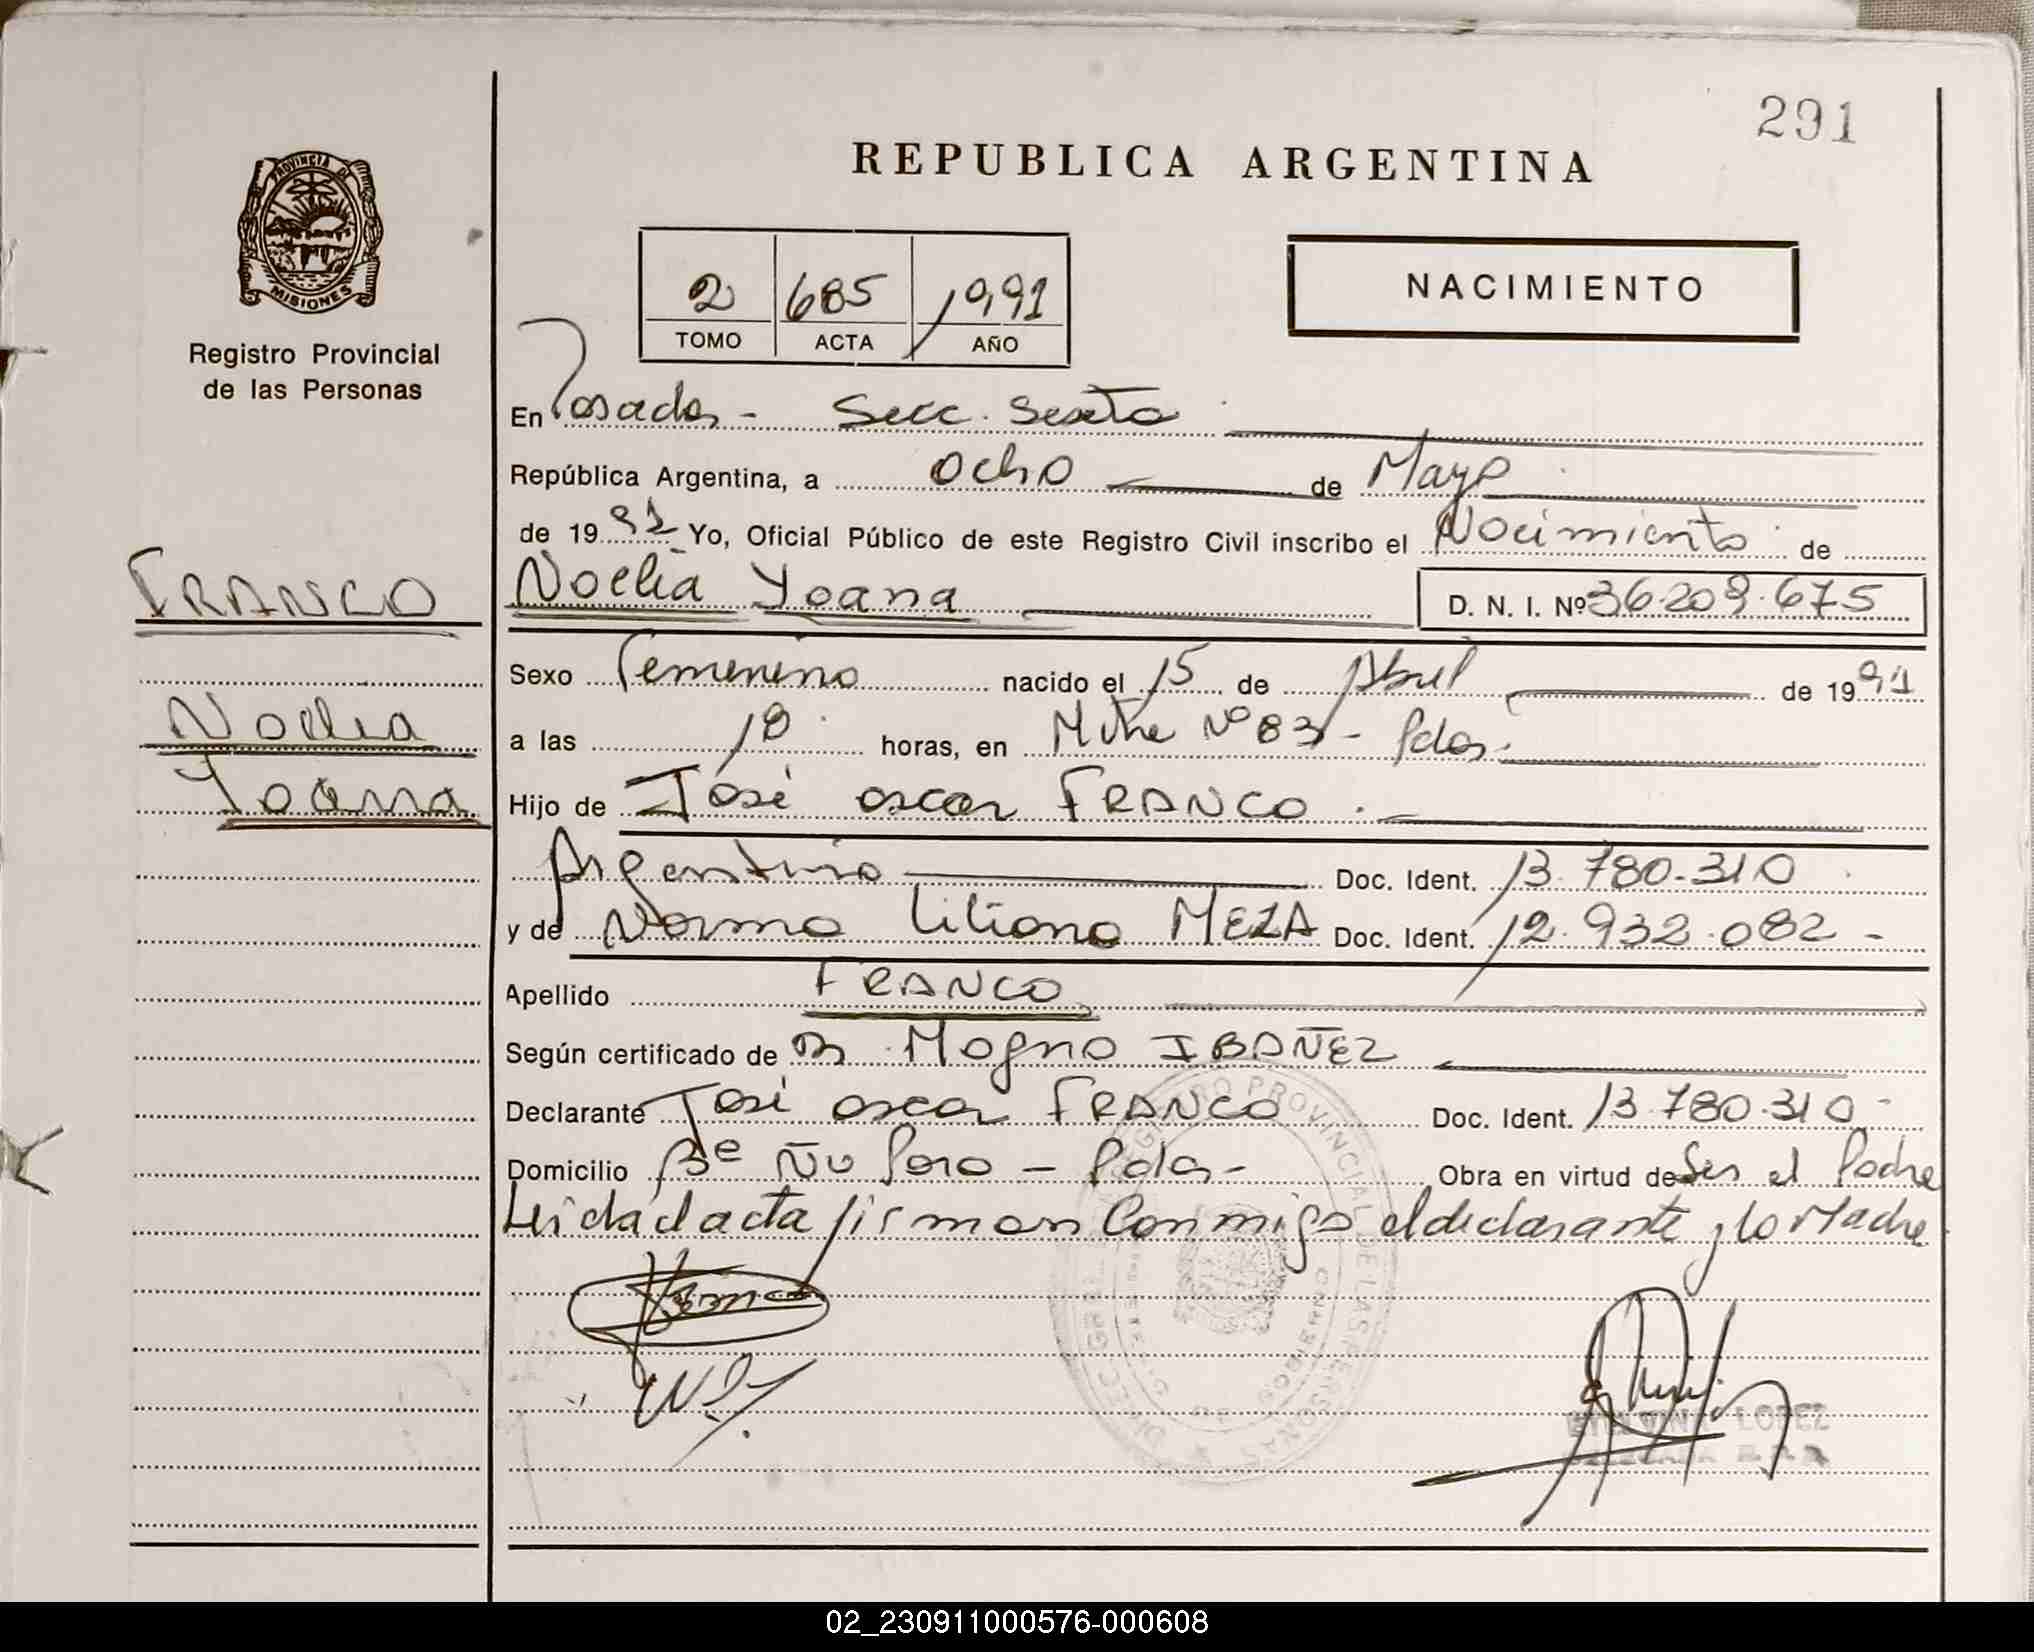 291
REPUBLICA ARGENTINA
PROVINCIA DE
MISIONES
Registro Provincial
de las Personas
2 685 1991
TOMO ACTA AÑO
NACIMIENTO
En Posadas - Secc. Sexta
República Argentina, a ocho de Mayo
de 1991 Yo, Oficial Público de este Registro Civil inscribo el Nacimiento de
FRANCO
Noelia Yoana D. N. I. Nº 36.209.675
Sexo Femenino nacido el 15 de Abril de 1991
Noelia
a las 18 horas, en Mitre Nº 83 - Pdas.
Yoana
Hijo de José oscar FRANCO
Argentino Doc. Ident. 13.780.310
y de Norma Liliana MEZA Doc. Ident. 12.932.082 -
Apellido FRANCO
Según certificado de Magno IBAÑEZ
Declarante José oscar FRANCO Doc. Ident. 13.780.310 -
Domicilio Bº Ñu Pora - Pdas - Obra en virtud de Ser el Padre
Leida el acta firman Conmigo el declarante y la Madre
REGISTRO PROVINCIAL DE LAS PERSONAS
LOPEZ
02_230911000576-000608